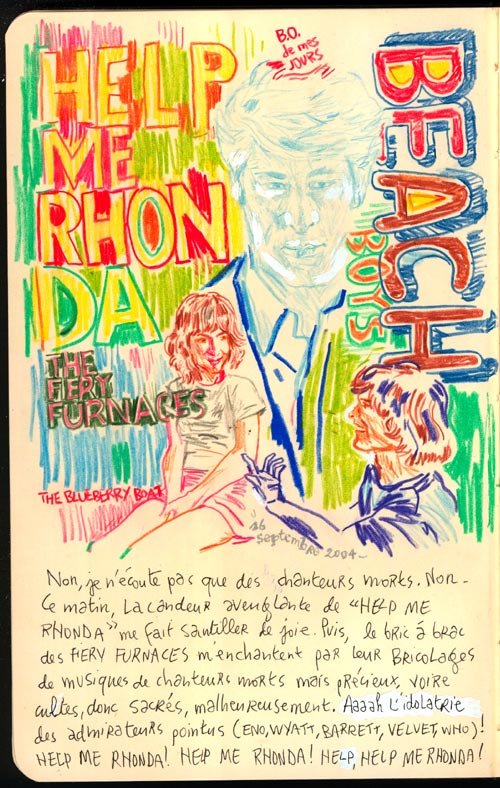 B.O.
de mes
JOURS
HELP
ME
RHON
DA
BEACH
BOYS
THE
FERY
FURNACES
THE BLUEBERRY BOAT
16
septembre 2004
Non, je n'écoute pas que des chanteurs morts. Non.
Ce matin, La candeur aveuglante de "HELP ME
RHONDA" me fait sautiller de joie. Puis, le bric à brac
des FIERY FURNACES m'enchantent par leur BRICOLAGES
de musiques de chanteurs morts mais précieux, voire
cultes, donc sacrés, malheureusement. Aaaah L'idolatrie
des admirateurs pointus (ENO, WYATT, BARRETT, VELVET, WHO)!
HELP ME RHONDA! HELP ME RHONDA! HELP, HELP ME RHONDA!